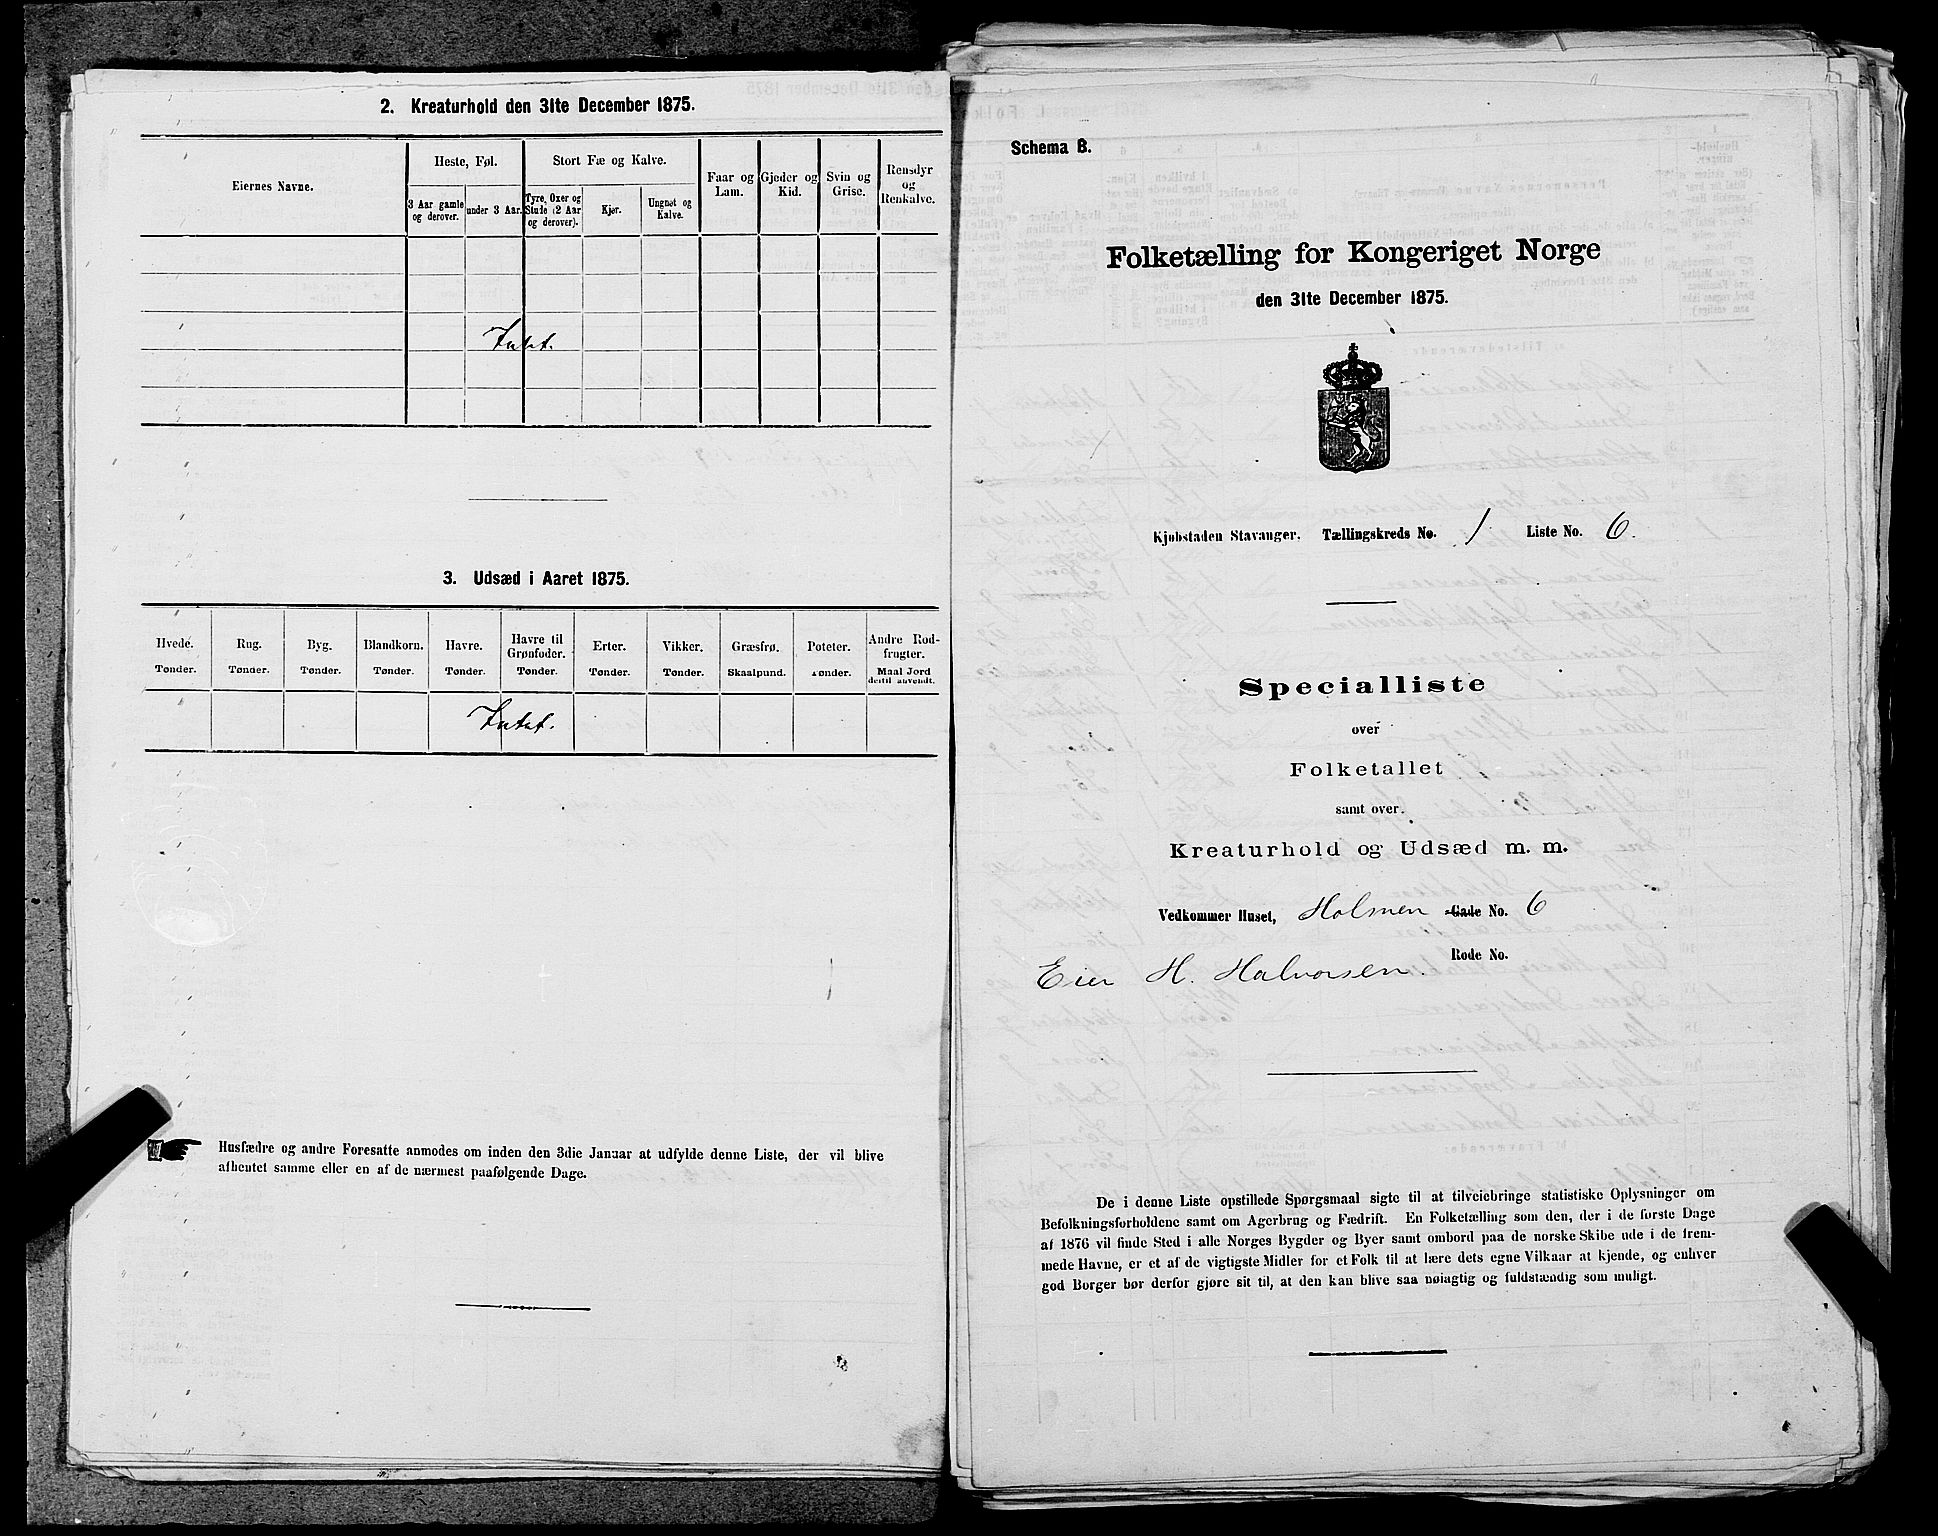 2. Kreaturhold den 31te December 1875.
Eiernes Navne.
Heste, Føl.
Stort Fæ og Kalve.
Faar og Lam.
Gjeder og Kid.
Svin og Grise.
Rensdyr og Renkalve.
3 Aar gamle og derover.
under 3 Aar.
Tyre, Oxer og Stude (2 Aar og derover).
Kjør.
Ungnøt og Kalve.
Intet.
3. Udsæd i Aaret 1875.
Hvede. Rug. Byg. Blandkorn. Havre. Havre til Grønfoder. Erter. Vikker. Græsfrø. Poteter. Andre Rodfrugter.
Tønder. Tønder. Tønder. Tønder. Tønder. Tønder. Tønder. Tønder. Skaalpund. Tønder. Maal Jord dertil anvendt.
Intet.
Husfædre og andre Foresatte anmodes om inden den 3die Januar at udfylde denne Liste, der vil blive
afhentet samme eller en af de nærmest paafølgende Dage.
Schema B.
Folketælling for Kongeriget Norge
den 31te December 1875.
Kjøbstaden Stavanger. Tællingskreds No. 1 Liste No. 6.
Specialliste
over
Folketallet
samt over
Kreaturhold og Udsæd m. m.
Vedkommer Huset, Holmen Gade No. 6
Rode No.
Eier H. Halvorsen.
De i denne Liste opstillede Spørgsmaal sigte til at tilveiebringe statistiske Oplysninger om
Befolkningsforholdene samt om Agerbrug og Fædrift. En Folketælling som den, der i de første Dage
af 1876 vil finde Sted i alle Norges Bygder og Byer samt ombord paa de norske Skibe ude i de frem-
mede Havne, er et af de vigtigste Midler for et Folk til at lære dets egne Vilkaar at kjende, og enhver
god Borger bør derfor gjøre sit til, at den kan blive saa nøiagtig og fuldstændig som muligt.